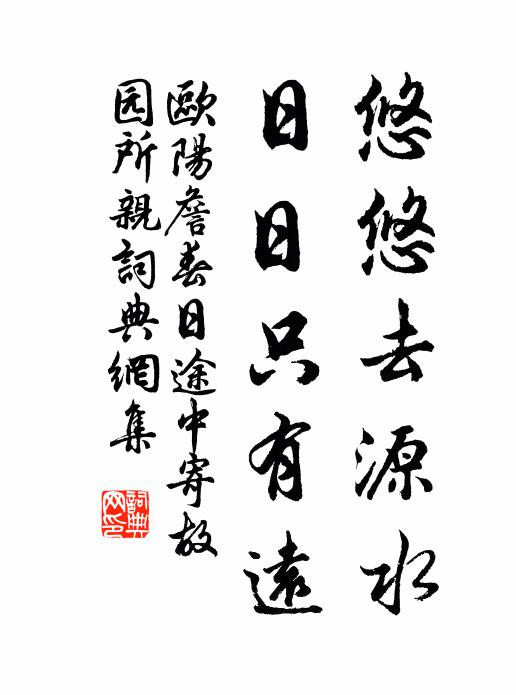 悠悠去源水
日日只有遠
歐陽詹春日途中寄故
园所親詞典網集
詞典
网印